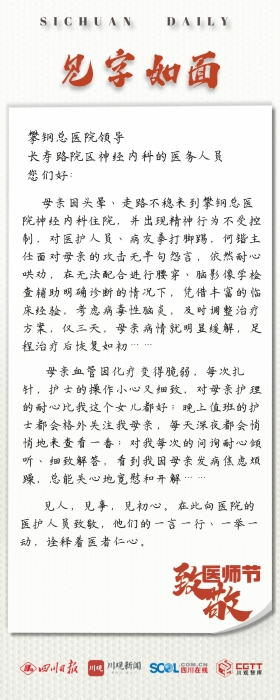 SICHUAN DAILY
见字如面
攀钢总医院领导
长寿路院区神经内科的医务人员
您们好：
母亲因头晕、走路不稳来到攀钢总医
院神经内科住院，并出现精神行为不受控
制，对医护人员、病友拳打脚踢，何锴主
任面对母亲的攻击无半句怨言，依然耐心
哄劝，在无法配合进行腰穿、脑影像学检
查辅助明确诊断的情况下，凭借丰富的临
床经验，考虑病毒性脑炎，及时调整治疗
方案，仅三天，母亲病情就明显缓解，足
程治疗后恢复如初……
母亲血管因化疗变得脆弱，每次扎
针，护士的操作小心又细致，对母亲护理
的耐心比我这个女儿都好；晚上值班的护
士都会格外关注我母亲，每天深夜都会悄
悄地来查看一番；对我每次的问询耐心倾
听、细致解答，看到我因母亲发病焦虑烦
躁，总能关心地宽慰和开解……
见人，见事，见初心。在此向医院的
医护人员致敬，他们的一言一行、一举一
动，诠释着医者仁心。
致敬
医师节
四川日报
川观新闻
SCOL.COM.CN
四川在线
CGTT
川观智库